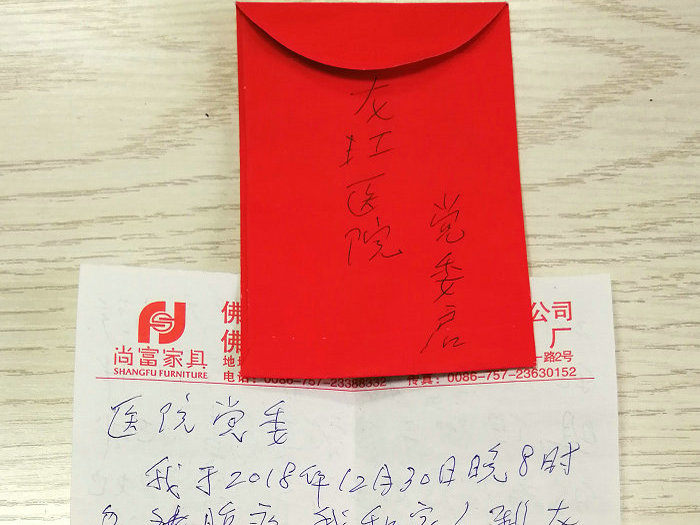 龙江医院
党委启
佛 公司
佛 厂
尚富家具 地址 一路2号
SHANGFU FURNITURE 电话：0086-757-23388332 传真：0086-757-23630152
医院党委
我于2018年12月30日晚8时